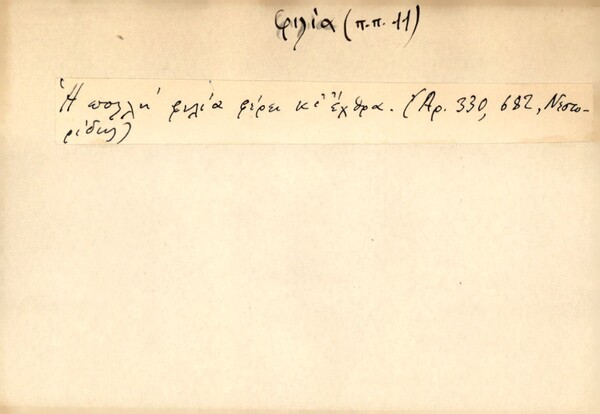 φιλία (π.π. 11)
Ἡ πολλὴ φιλία φέρει κι ἔχθρα. (Ἀρ. 330, 682, Νεστο-
ρίδης)